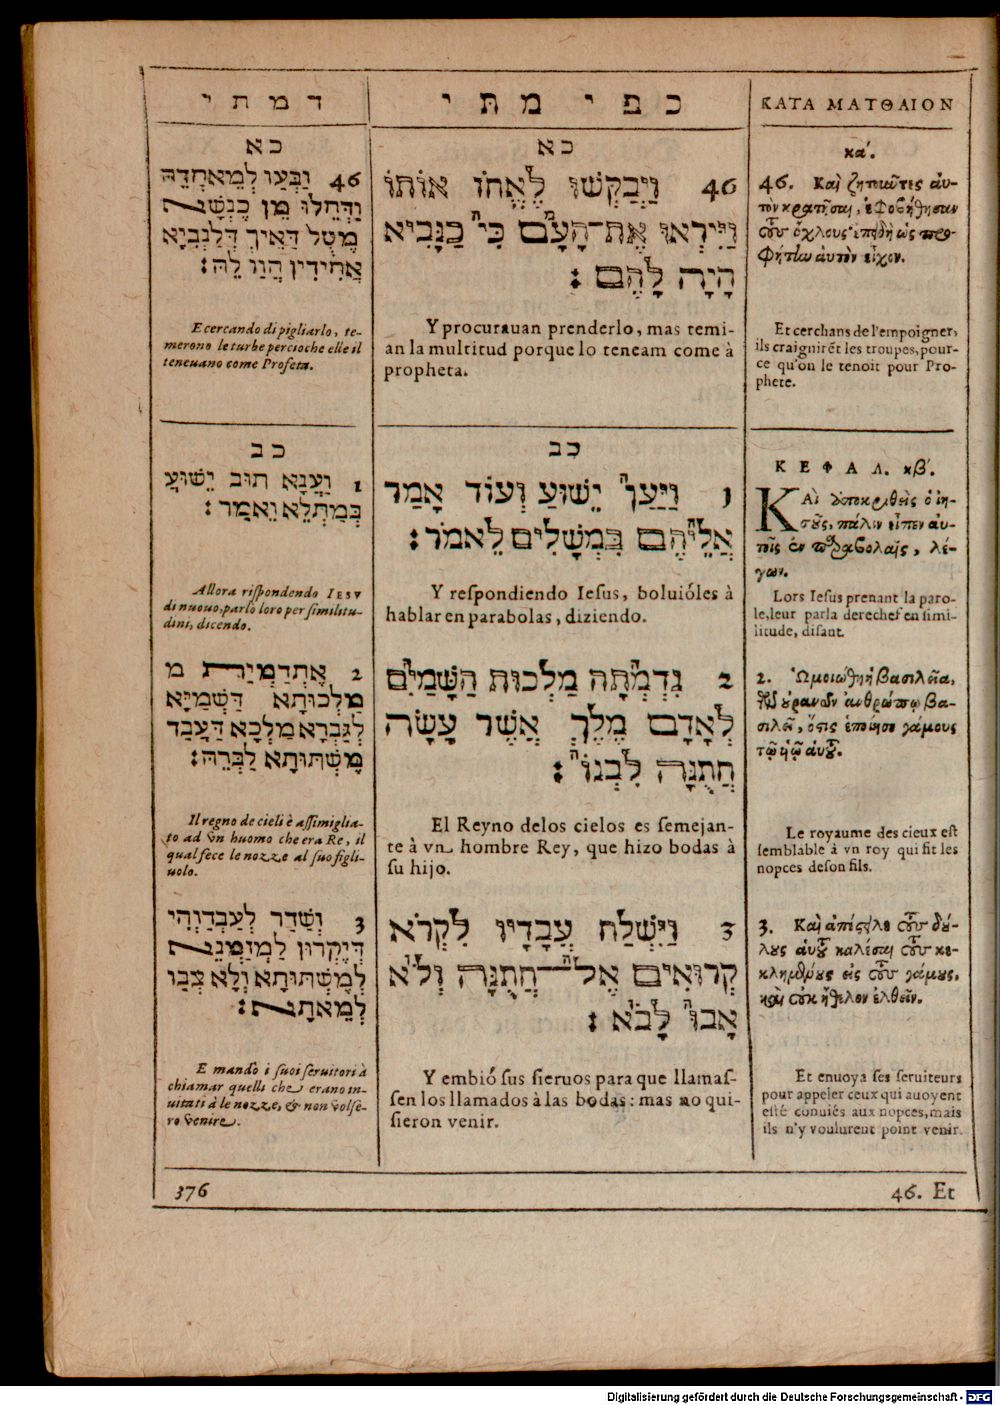 ד מ ת י
כא
46 וַבְּעַו לְמֵאחֲדֵהּ
וַדְּחֵלוּ מֵן כֶּנְשָׁא
מֶטֻל דַּאֵיךְ דְּלַנְבִיָא
אֲחִידִין הֲוַו לֵהּ׃
E cercando di pigliarlo, te-
merono le turbe percioche elle il
teneuano come Profeta.
כב
1 וַעֲנָא תּוּב יֵשׁוּעֲ
בְּמַתְלֵא וֵאמַר׃
Allora rispondendo IESV
di nuouo, parlò loro per similitu-
dini, dicendo.
מַלְכּוּתָא דַּשְׁמַיָּא
לְגַבְרָא מַלְכָּא דַּעֲבַד
מֶשְׁתּוּתָא לַבְרֵהּ׃
Il regno de cieli è assimiglia-
to ad vn huomo che era Re, il
qual fece le nozze al suo figli-
uolo.
3 וְשַׁדַּר לְעַבְדַּוְהִי
דְּיֶקְרוּן לַמְזַמְּנֵא
לְמֶשְׁתּוּתָא וְלָא צְבַו
לְמֵאתָא׃
E mandò i suoi seruitori à
chiamar quelli che erano in-
uitati à le nozze, & non volse-
ro venire.
כ פ י מ תּ י
כא
46 וַיְבַקְשׁוּ לֶאֱחֹז אוֹתוֹ
וַיִּירְאוּ אֶת־הָעָם כִּי כַּנָּבִיא
הָיָה לָהֶם׃
Y procurauan prenderlo, mas temi-
an la multitud porque lo teneam come à
propheta.
כב
1 וַיַּעַן יֵשׁוּעַ וְעוֹד אָמַר
אֲלֵיהֶם בִּמְשָׁלִים לֵאמֹר׃
Y respondiendo Iesus, boluióles à
hablar en parabolas, diziendo.
2 נִדְמְתָה מַלְכוּת הַשָּׁמַיִם
לְאָדָם מֶלֶךְ אֲשֶׁר עָשָׂה
חֲתֻנָּה לִבְנוֹ׃
El Reyno delos cielos es semejan-
te à vn hombre Rey, que hizo bodas à
su hijo.
3 וַיִּשְׁלַח עֲבָדָיו לִקְרֹא
קְרוּאִים אֶל־חֲתֻנָּה וְלֹא
אָבוּ לָבֹא׃
Y embió sus sieruos para que llamas-
sen los llamados à las bodas: mas no qui-
sieron venir.
ΚΑΤΑ ΜΑΤΘΑΙΟΝ
κα΄.
46. Καὶ ζητοῦντες αὐ-
τὸν κρατῆσαι, ἐφοβήθησαν
τοὺς ὄχλους· ἐπειδὴ ὡς προ-
φήτην αὐτὸν εἶχον.
Et cerchans de l'empoigner,
ils craignirẽt les troupes, pour-
ce qu'on le tenoit pour Pro-
phete.
ΚΕΦΑΛ. κβ΄.
ΚΑὶ ἀποκριθεὶς ὁ ἰη-
σοῦς, πάλιν εἶπεν αὐ-
τοῖς ἐν παραβολαῖς, λέ-
γων.
Lors Iesus prenant la paro-
le, leur parla derechef en simi-
litude, disant.
2. Ὡμοιώθη ἡ βασιλεία,
τῶν οὐρανῶν ἀνθρώπῳ βα-
σιλεῖ, ὅστις ἐποίησε γάμους
τῷ ἡῷ αὐτοῦ.
Le royaume des cieux est
semblable à vn roy qui fit les
nopces de son fils.
3. Καὶ ἀπέστειλε τοὺς δού-
λους αὐτοῦ καλέσαι τοὺς κε-
κλημένους εἰς τοὺς γάμους,
καὶ οὐκ ἤθελον ἐλθεῖν.
Et enuoya ses seruiteurs
pour appeler ceux qui auoyent
esté conuiés aux nopces, mais
ils n'y voulurent point venir.
376
46. Et
Digitalisierung gefördert durch die Deutsche Forschungsgemeinschaft - DFG